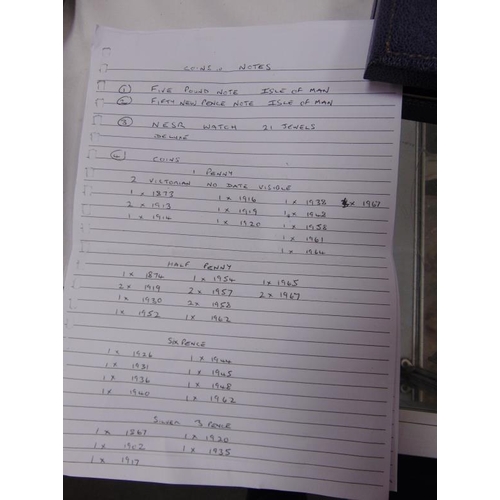 COINS & NOTES
1 FIVE POUND NOTE ISLE OF MAN
2 FIFTY NEW PENCE NOTE ISLE OF MAN
3 NESR WATCH 21 JEWELS
4 COINS
1 PENNY
2 VICTORIAN NO DATE VISIBLE
1 x 1873 1 x 1916 1 x 1938 x 1967
2 x 1913 1 x 1919 1 x 1948
1 x 1914 1 x 1920 1 x 1958
1 x 1961
1 x 1964
HALF PENNY
1 x 1874 1 x 1954 1 x 1965
2 x 1919 2 x 1957 2 x 1967
1 x 1930 2 x 1958
1 x 1952 1 x 1962
SIX PENCE
1 x 1926 1 x 1944
1 x 1931 1 x 1945
1 x 1936 1 x 1948
1 x 1940 1 x 1962
SILVER 3 PENCE
1 x 1867 1 x 1920
1 x 1902 1 x 1935
1 x 1917